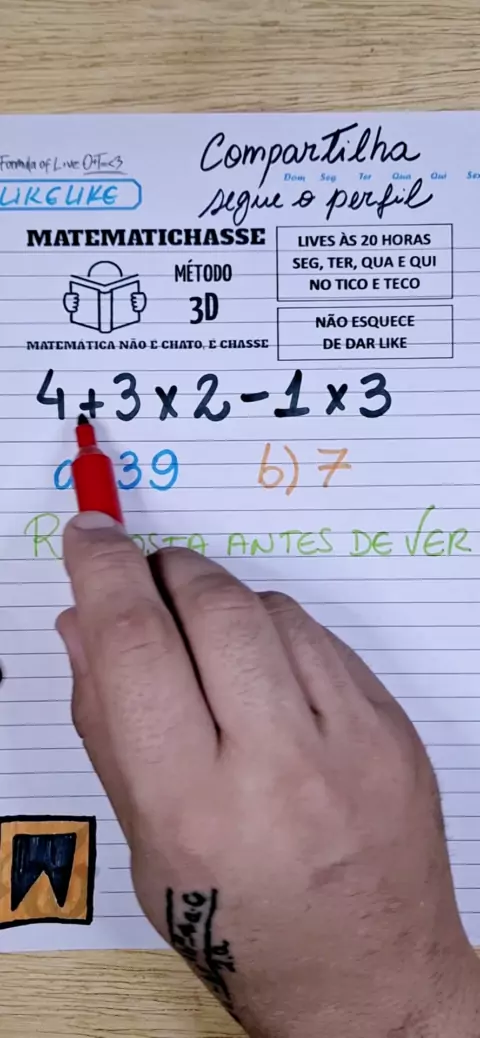 Compartilha
Formula of Live O+T=<3
Dom Seg Ter Qua Qui Sex
LIKE LIKE
segue o perfil
MATEMATICHASSE
MÉTODO
3D
MATEMÁTICA NÃO É CHATO, É CHASSE
LIVES ÀS 20 HORAS
SEG, TER, QUA E QUI
NO TICO E TECO
NÃO ESQUECE
DE DAR LIKE
4+3x2-1x3
a) 39 b) 7
ANTES DE VER